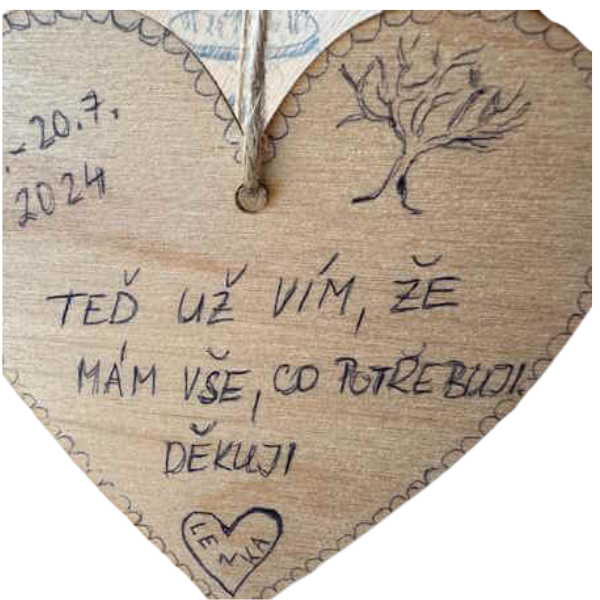 - 20.7.
2024
TEĎ UŽ VÍM, ŽE
MÁM VŠE, CO POTŘEBUJI.
DĚKUJI
LENKA